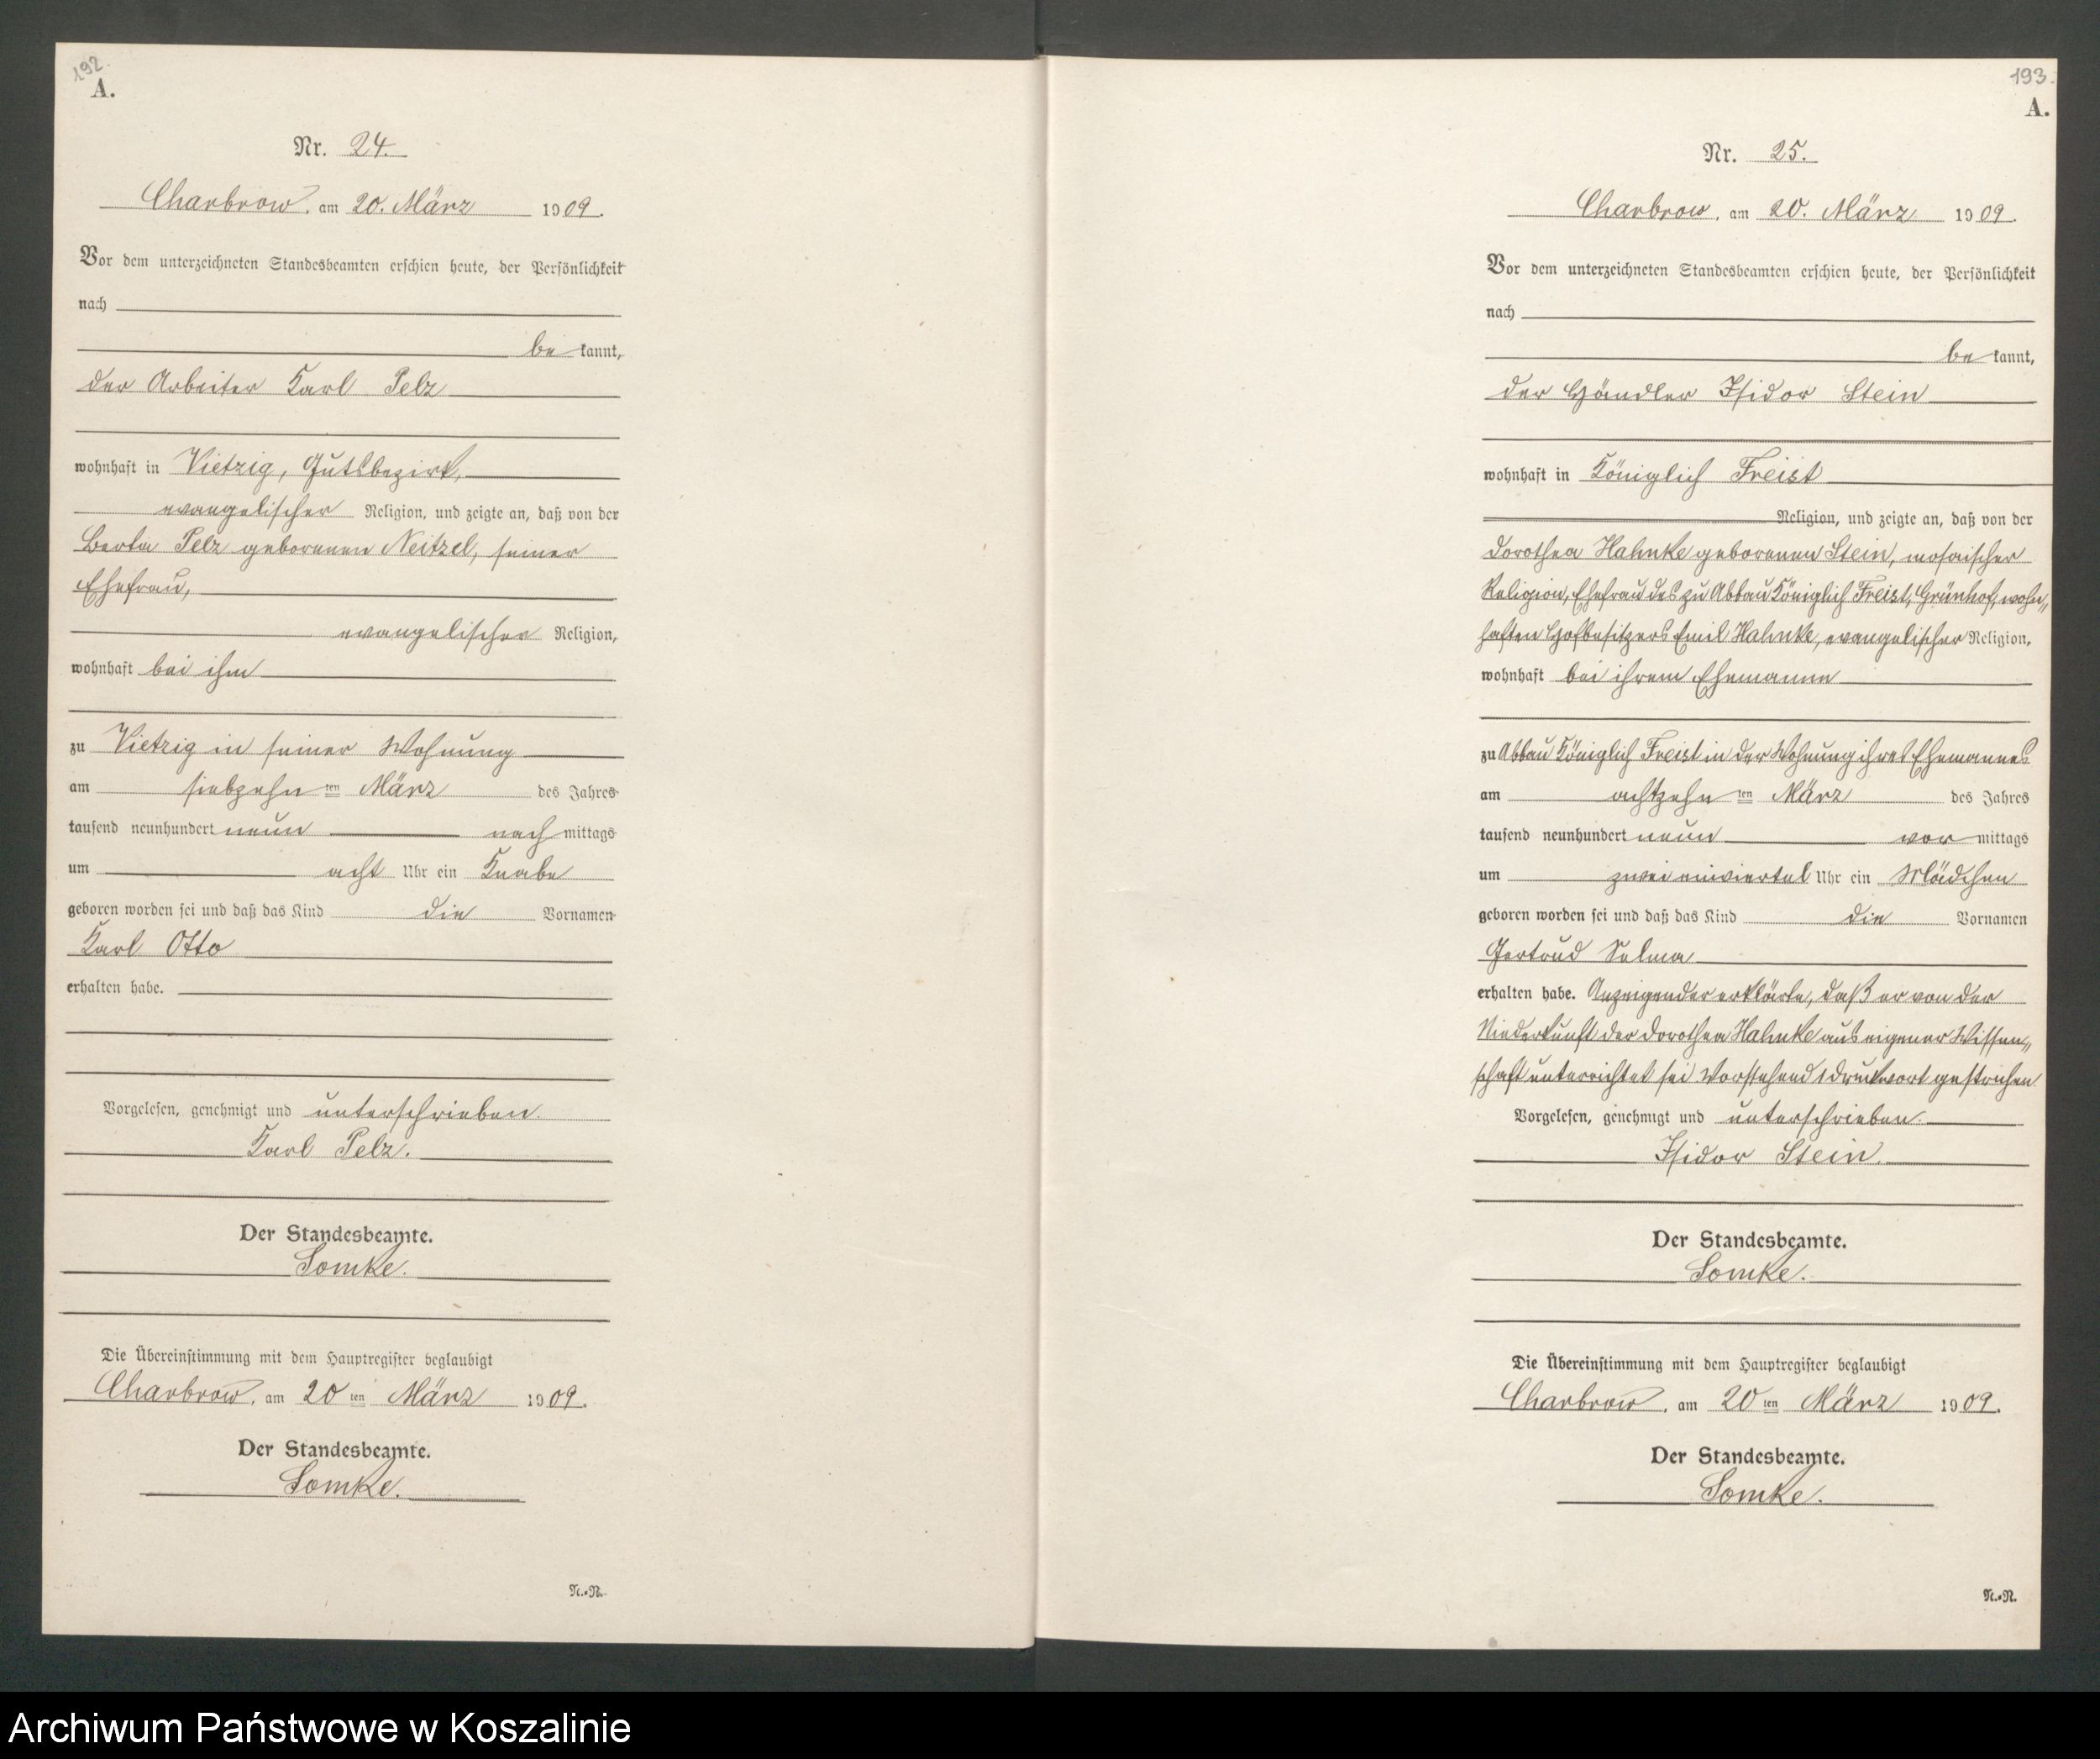 192.
A.
Nr. 24.
Charbrow, am 20. März 1909.
Vor dem unterzeichneten Standesbeamten erschien heute, der Persönlichkeit
nach
bekannt,
der Arbeiter Karl Pelz
wohnhaft in Vietzig, Gutsbezirk,
evangelischer Religion, und zeigte an, daß von der
Berta Pelz geborenen Neitzel, seiner
Ehefrau,
evangelischer Religion,
wohnhaft bei ihm
zu Vietzig in seiner Wohnung
am siebzehn ten März des Jahres
tausend neunhundert neun nach mittags
um acht Uhr ein Knabe
geboren worden sei und daß das Kind die Vornamen
Karl Otto
erhalten habe.
Vorgelesen, genehmigt und unterschrieben.
Karl Pelz.
Der Standesbeamte.
Somke.
Die Übereinstimmung mit dem Hauptregister beglaubigt
Charbrow, am 20 ten März 1909.
Der Standesbeamte.
Somke.
N.-N.
193.
A.
Nr. 25.
Charbrow, am 20. März 1909.
Vor dem unterzeichneten Standesbeamten erschien heute, der Persönlichkeit
nach
bekannt,
der Händler Isidor Stein
wohnhaft in Königlich Freist
Religion, und zeigte an, daß von der
Dorothea Hahnke geborenen Stein, mosaischer
Religion, Ehefrau des zu Abbau Königlich Freist, Grünhof, wohn„
haften Hofbesitzers Emil Hahnke, evangelischer Religion,
wohnhaft bei ihrem Ehemanne
zu Abbau Königlich Freist in der Wohnung ihres Ehemannes
am achtzehn ten März des Jahres
tausend neunhundert neun vor mittags
um zwei einviertel Uhr ein Mädchen
geboren worden sei und daß das Kind die Vornamen
Gertrud Selma
erhalten habe. Anzeigender erklärte, daß er von der
Niederkunft der Dorothea Hahnke aus eigener Wissen„
schaft unterrichtet sei. Vorstehend 1 Druckwort gestrichen
Vorgelesen, genehmigt und unterschrieben.
Isidor Stein.
Der Standesbeamte.
Somke.
Die Übereinstimmung mit dem Hauptregister beglaubigt
Charbrow, am 20 ten März 1909.
Der Standesbeamte.
Somke.
N.-N.
Archiwum Państwowe w Koszalinie